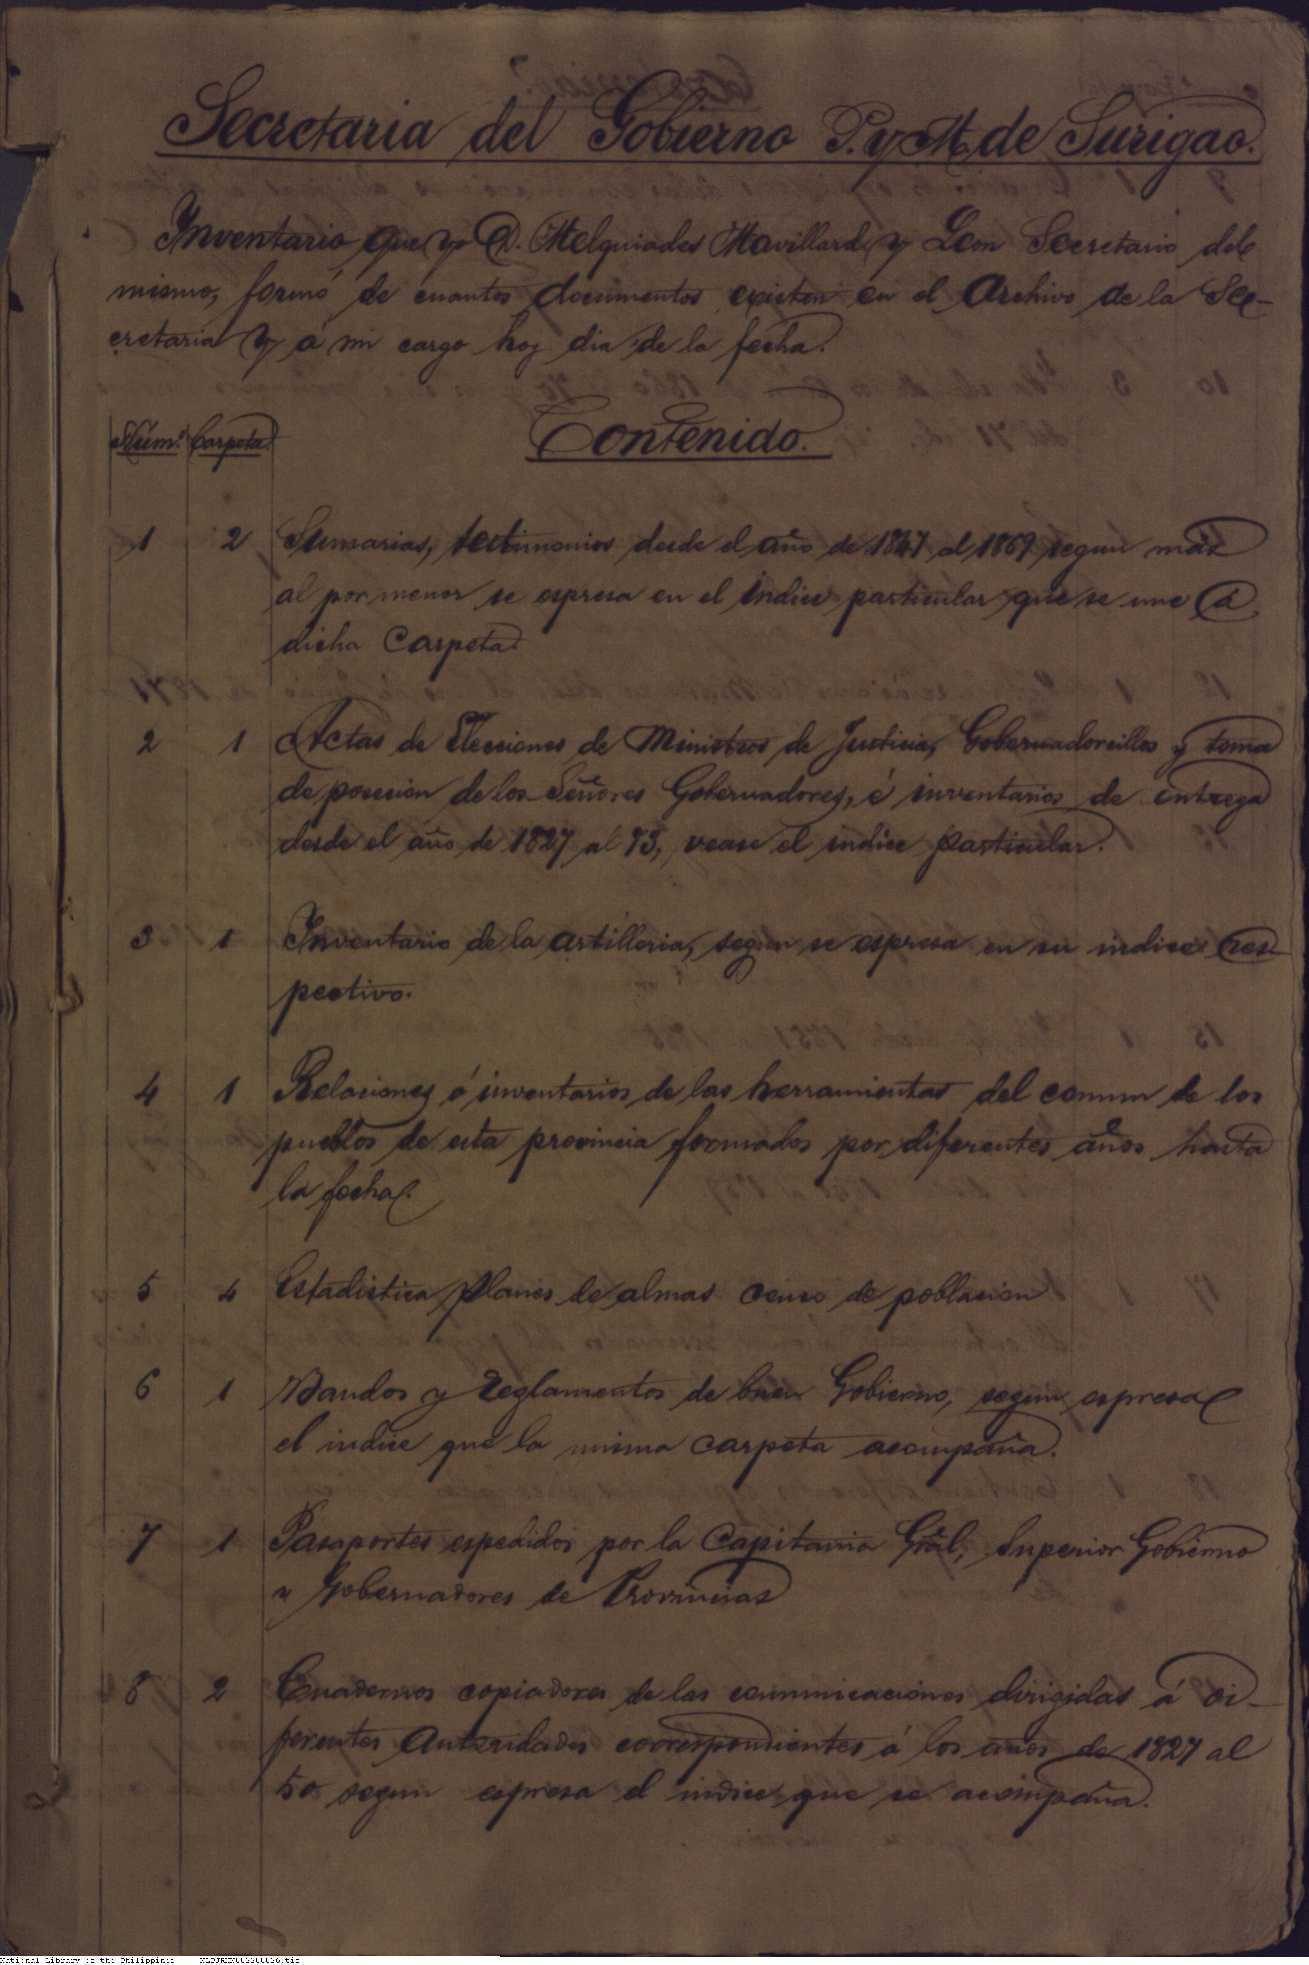 Secretaria del Gobierno P. y M. de Surigao.
Inventario que yo D. Melquiades Movillard y Leon Secretario del
mismo, formó de cuantos documentos existen en el Archivo de la Se-
cretaria y á mi cargo hoy dia de la fecha.
Núm.º Carpeta. Contenido.
1 2 Sumarias, testimonios desde el año de 1847 al 1869 segun mas
al por menor se espresa en el indice particular que se une á
dicha Carpeta.
2 1 Actas de Elecciones de Ministros de Justicia, Gobernadorcillos y toma
de posecion de los Señores Gobernadores, é inventarios de entrega
desde el año de 1827 al 73, vease el indice particular.
3 1 Inventario de la artilleria, segun se espresa en su indice res-
pectivo.
4 1 Relaciones ó inventarios de las herramientas del comun de los
pueblos de esta provincia formados por diferentes años hasta
la fecha.
5 4 Estadistica planos de almas censo de poblacion
6 1 Bandos y reglamentos de buen Gobierno, segun espresa
el indice que la misma carpeta acompaña.
7 1 Pasaportes espedidos por la Capitania Gral, Superior Gobierno
y Gobernadores de Provincias
8 2 Cuadernos copiadores de las comunicaciones dirigidas á di-
ferentes Autoridades correspondientes á los años de 1827 al
50 segun espresa el indice que se acompaña.
National Library of the Philippines